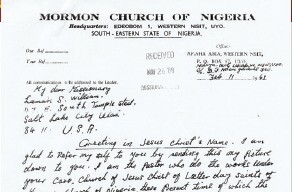 MORMON CHURCH OF NIGERIA
Headquarters: EDEOBOM 1, WESTERN NSIT, UYO.
SOUTH-EASTERN STATE OF NIGERIA.
Office:-
Our Ref
RECEIVED
AFAHA ABIA, WESTERN NSIT,
P. O. BOX 57, UYO,
Your Ref
NOV 26 69
FEB 11
All communications to be addressed to the Leader.
My dear Missionary
Lamar S. William
47 E. South Temple Street.
Salt Lake City Utah
84 11. U.S.A.
Greeting in Jesus Christ's Name. I am
glad to Refer my self to you by sending this my Picture
down to you. I am the Pastor who do the works under
your Care, Church of Jesus Christ of Latter day Saints of
Church of Nigeria these Present time of which the